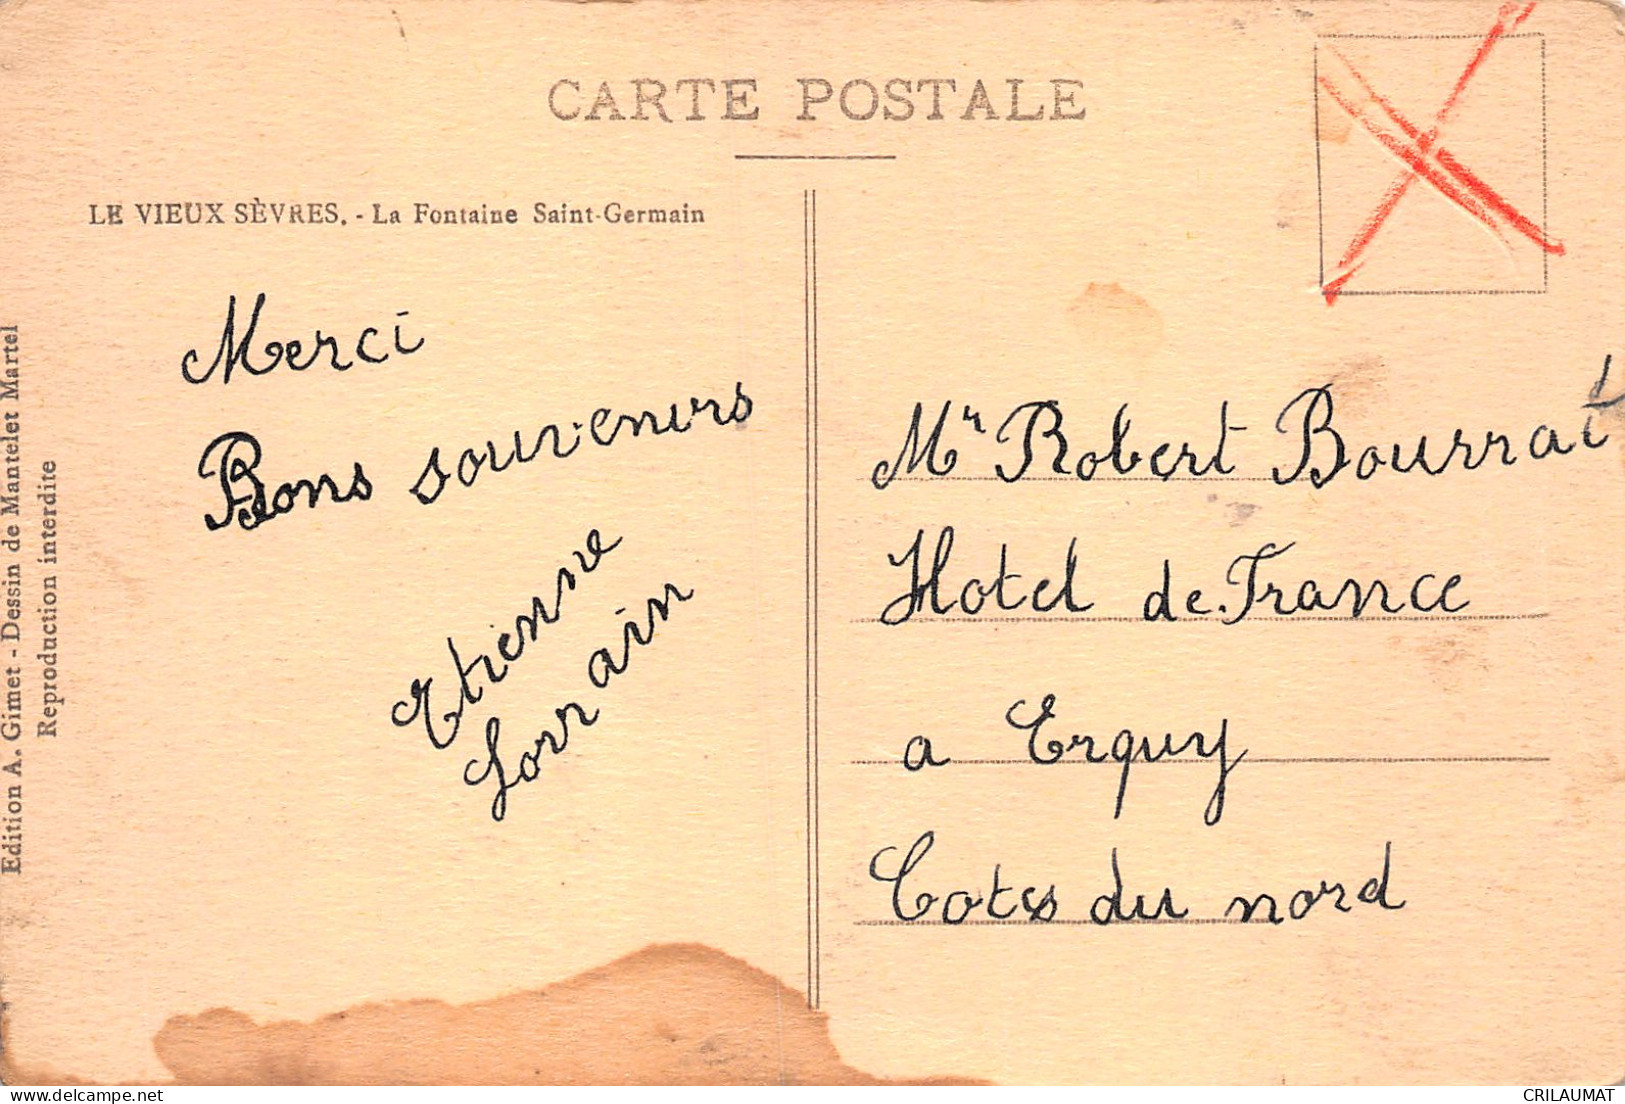 CARTE POSTALE
LE VIEUX SÈVRES. - La Fontaine Saint-Germain
Merci
Bons souvenirs
Etienne
Lorrain
Mr Robert Bourrat
Hotel de France
a Erquy
Cotes du nord
Edition A. Gimet - Dessin de Mantelet Martel
Reproduction interdite
delcampe.net
CRILAUMAT